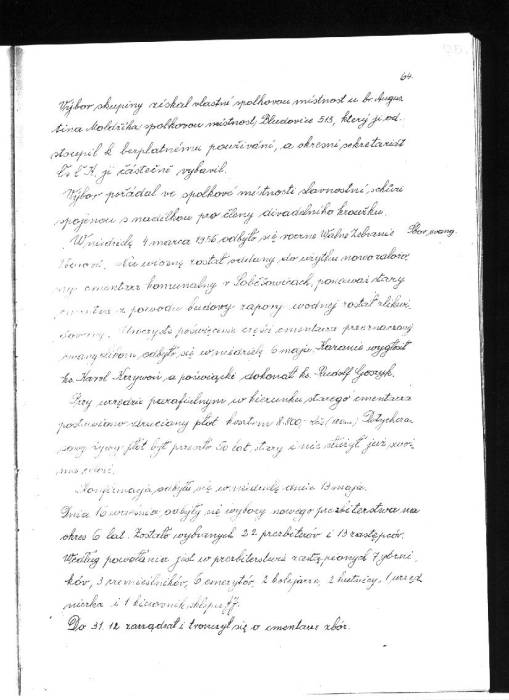 64.
Výbor skupiny získal vlastní spolkovou místnost u br. Augus
tina Moldříka spolkovou místnost, Bludovice 513, který ji od
stoupil k bezplatnému používání, a okresní sekretariát
ji částečně vybavil.
Výbor pořádal ve spolkové místnosti slavnostní schůzi
spojenou s nadílkou pro členy divadelního kroužku.
W niedzielę 4 marca 1956 odbyło się roczne Walne Zebranie
Zbor. ewang.
Na wiosnę został oddany do użytku nowozałoro
ny cmentarz komunalny w Soběšowicach, ponieważ stary
cmentarz z powodu budowy zapory wodnej został zlikwi
dowany. Uroczyste poświęcenie części cmentarza przeznaczonej
ewangelikom, odbyło się w niedzielę 6 maja. Kazanie wygłosił
ks. Karol Krzywoń a poświącki dokonał ks. Rudolf Goszyk.
Przy urzędzie parafialnym w kierunku starego cmentarza
postawiono druciany płot kosztem 8.800,- Dotychcza
sowy żywy płot był przeszło 50 lat, stary i nie służył już swo
Konfirmacja odbyła się w niedzielę dnia 13 maja.
Dnia 16 września odbyły się wybory nowego prezbiterstwa na
okres 6 lat. Zostało wybranych 22 prezbiterów i 13 zastępców.
Według powołania jest w prezbiterstwie zastąpionych 7 górni
ków, 3 rzemieślników, 6 emerytów, 2 kolejarze, 2 hutnicy, 1 urzęd
niczka i 1 kierownik sklepu
Do 31.12 zarządzał i troszczył się o cmentarz zbór.